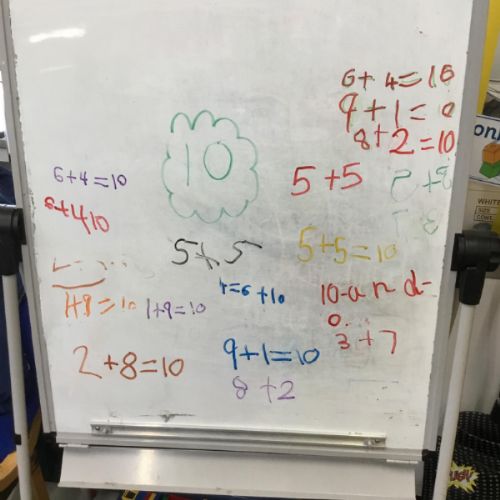 6+4=10
9+1=10
8+2=10
10
6+4=10
5+5
8+410
5+5
5+5=10
4=6+10
10-and-
0.
1+9=10
3+7
2+8=10
9+1=10
8+2
WHITE